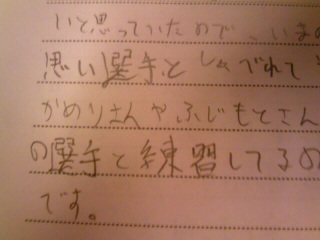 いと思っていたので、いまの
思い選手としゃべれて
かめりさんやふじもとさん
の選手と練習してるの
です。